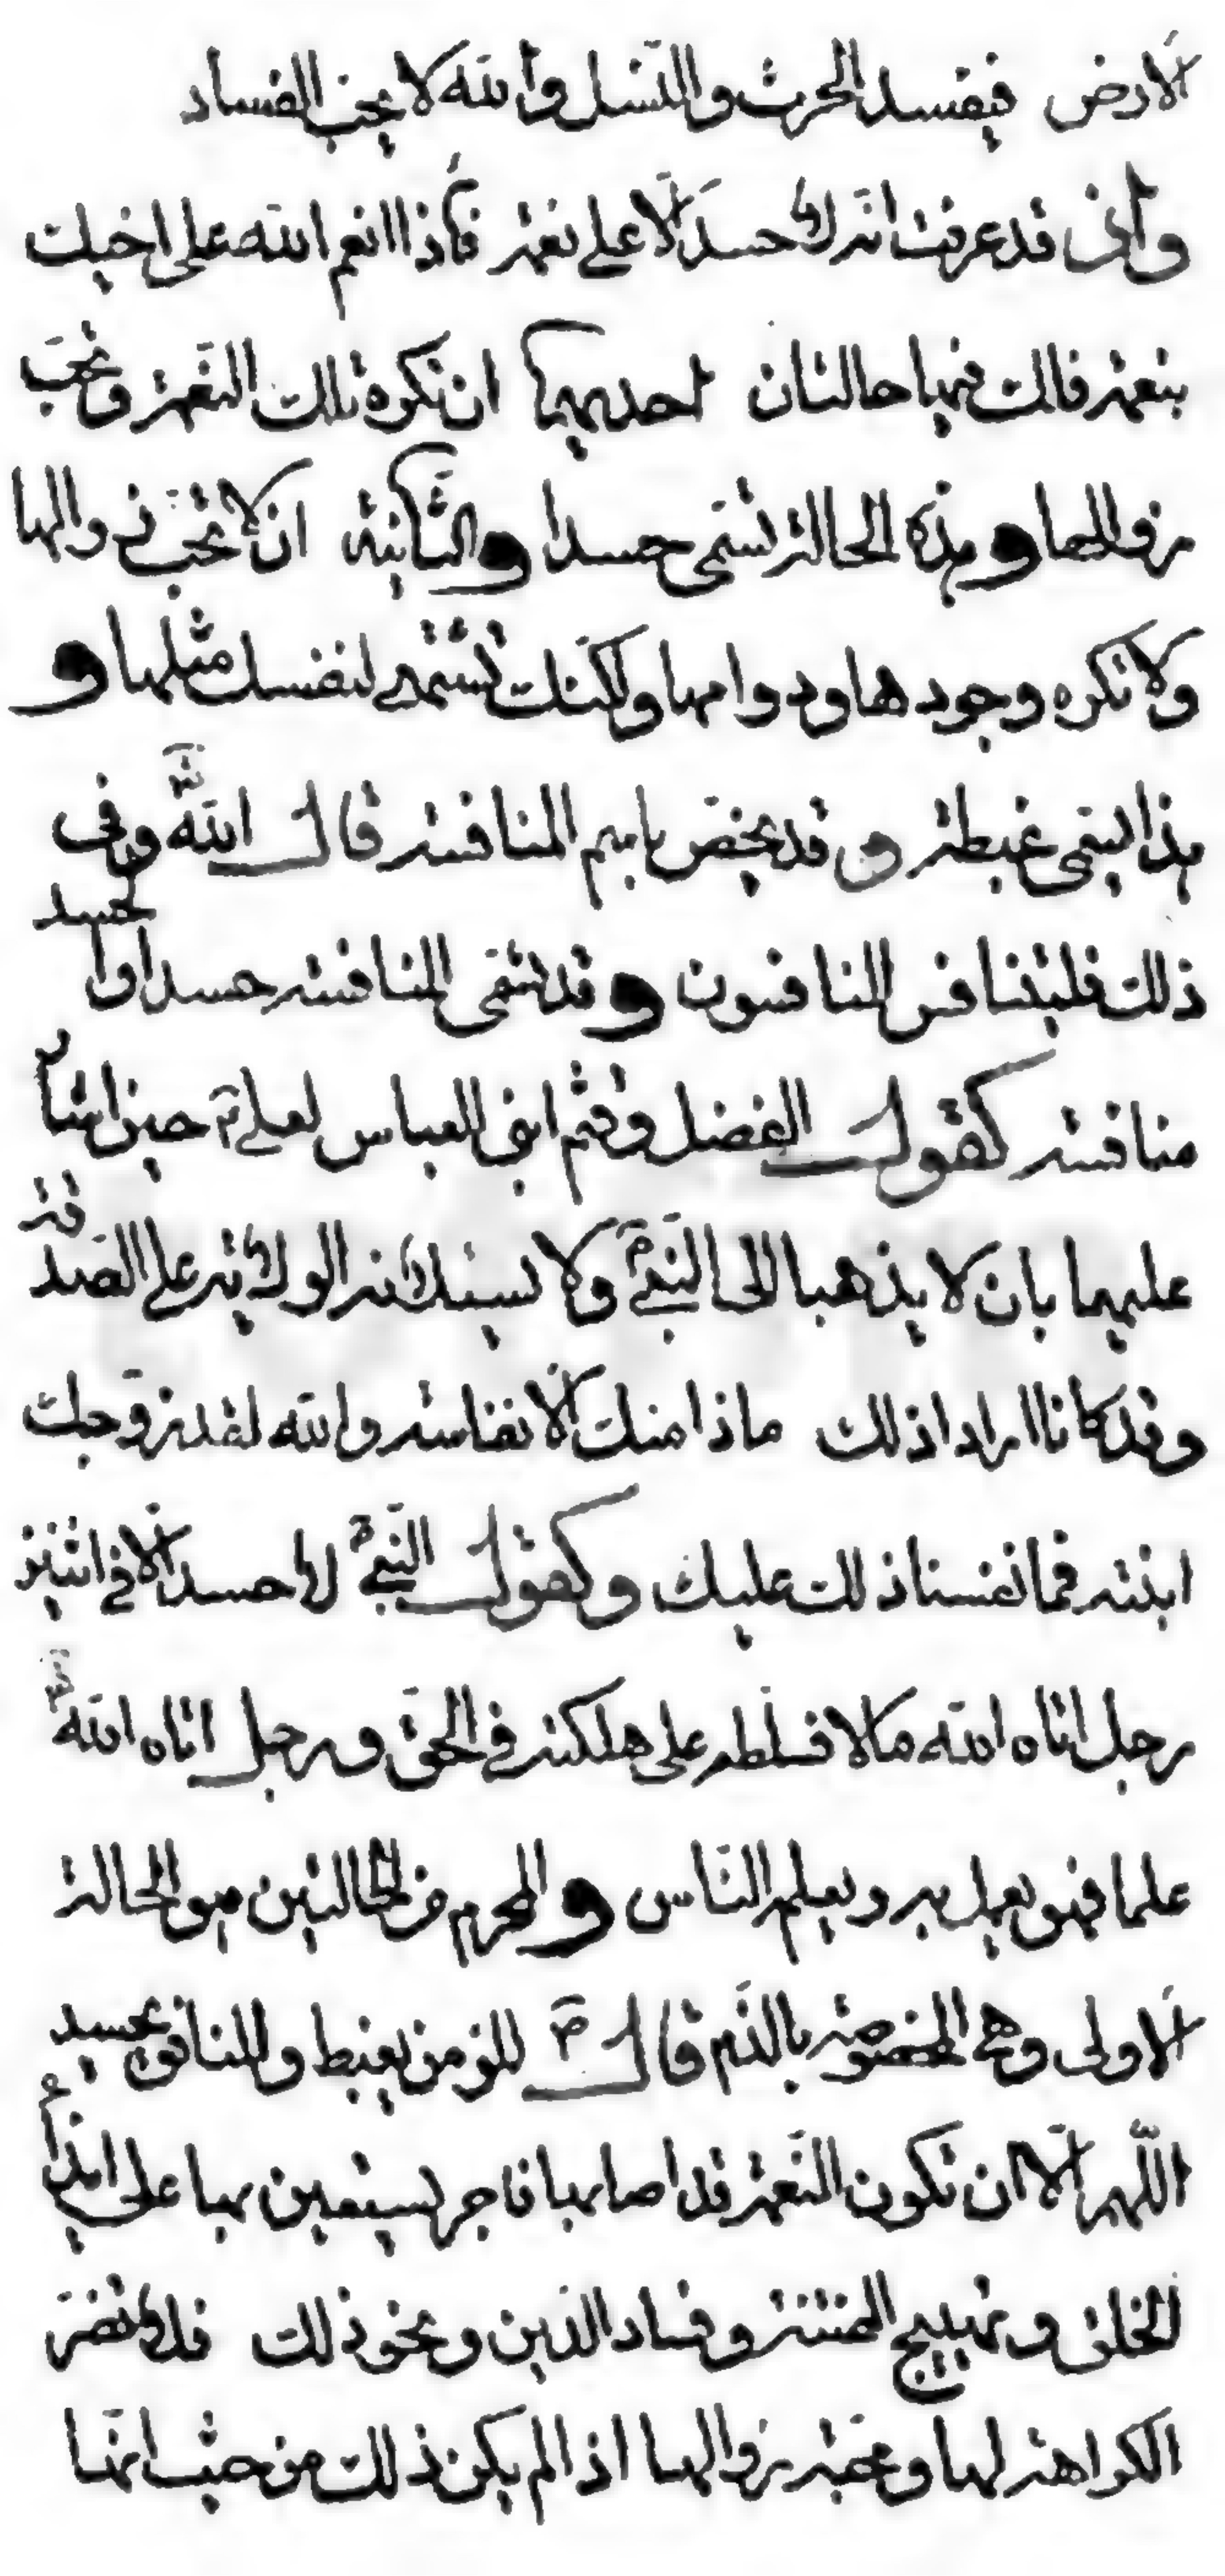 الارض فيفسد الحرث والنسل والله لا يحب الفساد
واذ قد عرفت انه لا حسد الا على نعمة فاذا انعم الله على اخيك
بنعمة فلك فيها حالتان احديهما ان تكره تلك النعمة وتحب
زوالها وهذه الحالة تسمى حسدا والثانية ان لا تحب زوالها
ولا تكره وجودها ودوامها ولكنك تشتهي لنفسك مثلها و
هذا يسمى غبطة وقد يخص باسم المنافسة قال الله وفي
ذلك فليتنافس المتنافسون وقد تسمى المنافسة حسدا والحسد
منافسة كقول الفضل وقثم ابني العباس لعلي حين اشار
عليهما بان لا يذهبا الى النبي ولا يسئلانه الولاية على الصدقة
وقد كانا ارادا ذلك ماذا منك الا نفاسة والله لقد زوجك
ابنته فما نفسنا ذلك عليك وكقول النبي لا حسد الا في اثنين
رجل اتاه الله مالا فسلطه على هلكته في الحق ورجل اتاه الله
علما فهو يعمل به ويعلم الناس والمحرم من الحالتين هو الحالة
الاولى وهي المخصوصة بالذم قال ص المؤمن يغبط والمنافق يحسد
اللهم الا ان تكون النعمة قد اصابها فاجر يستعين بها على ايذاء
الخلق وتهييج الفتنة وفساد الدين ونحو ذلك فلا تضر
الكراهة لها ومحبة زوالها اذا لم يكن ذلك من حيث انها